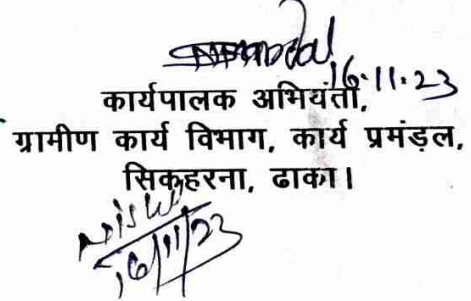 16.11.23
कार्यपालक अभियंता,
ग्रामीण कार्य विभाग, कार्य प्रमंड़ल,
सिकहरना, ढाका।
16/11/23